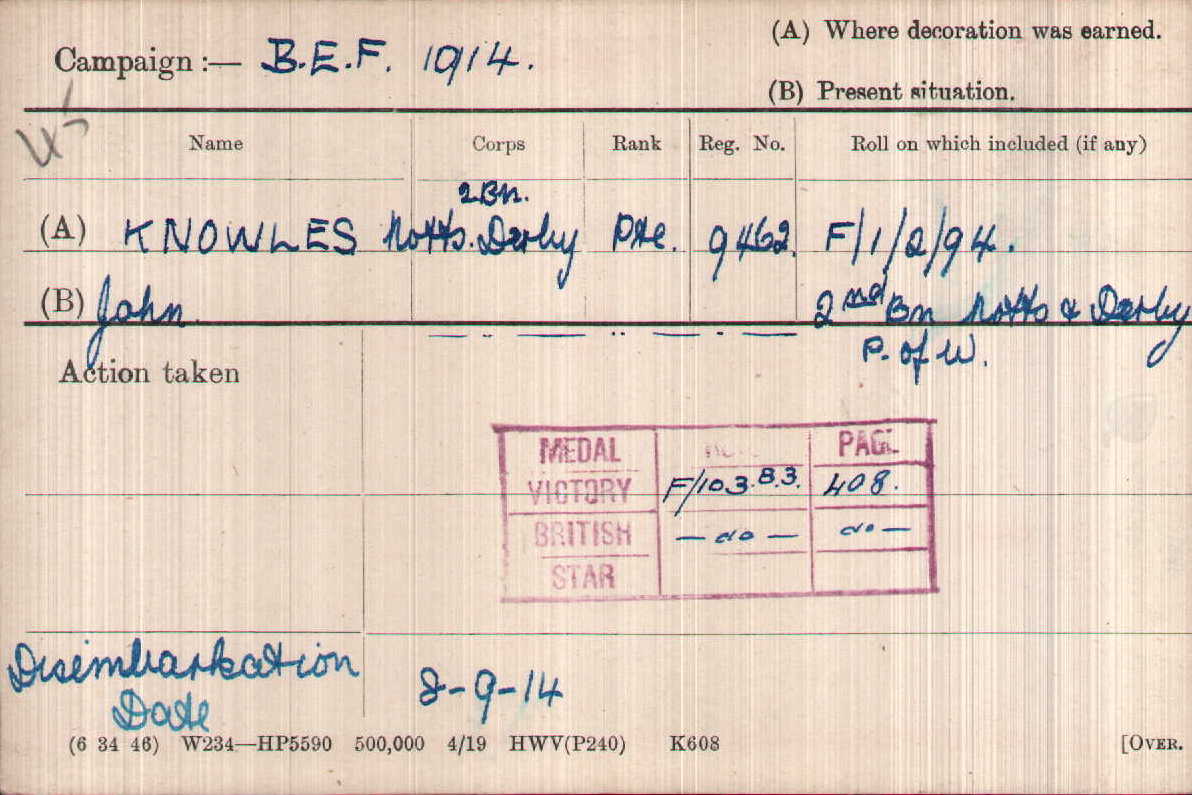 Campaign :— B.E.F. 1914.
(A) Where decoration was earned.
(B) Present situation.
Name Corps Rank Reg. No. Roll on which included (if any)
2Bn.
(A) KNOWLES Notts. Derby Pte. 9462. F/1/2/94.
(B) John 2nd Bn Notts & Derby
P. of W.
Action taken
MEDAL PAGE
VICTORY F/103.B.3. 408.
BRITISH — do — do —
STAR
Disembarkation 8-9-14
Date
(6 34 46) W234—HP5590 500,000 4/19 HWV(P240) K608 [OVER.